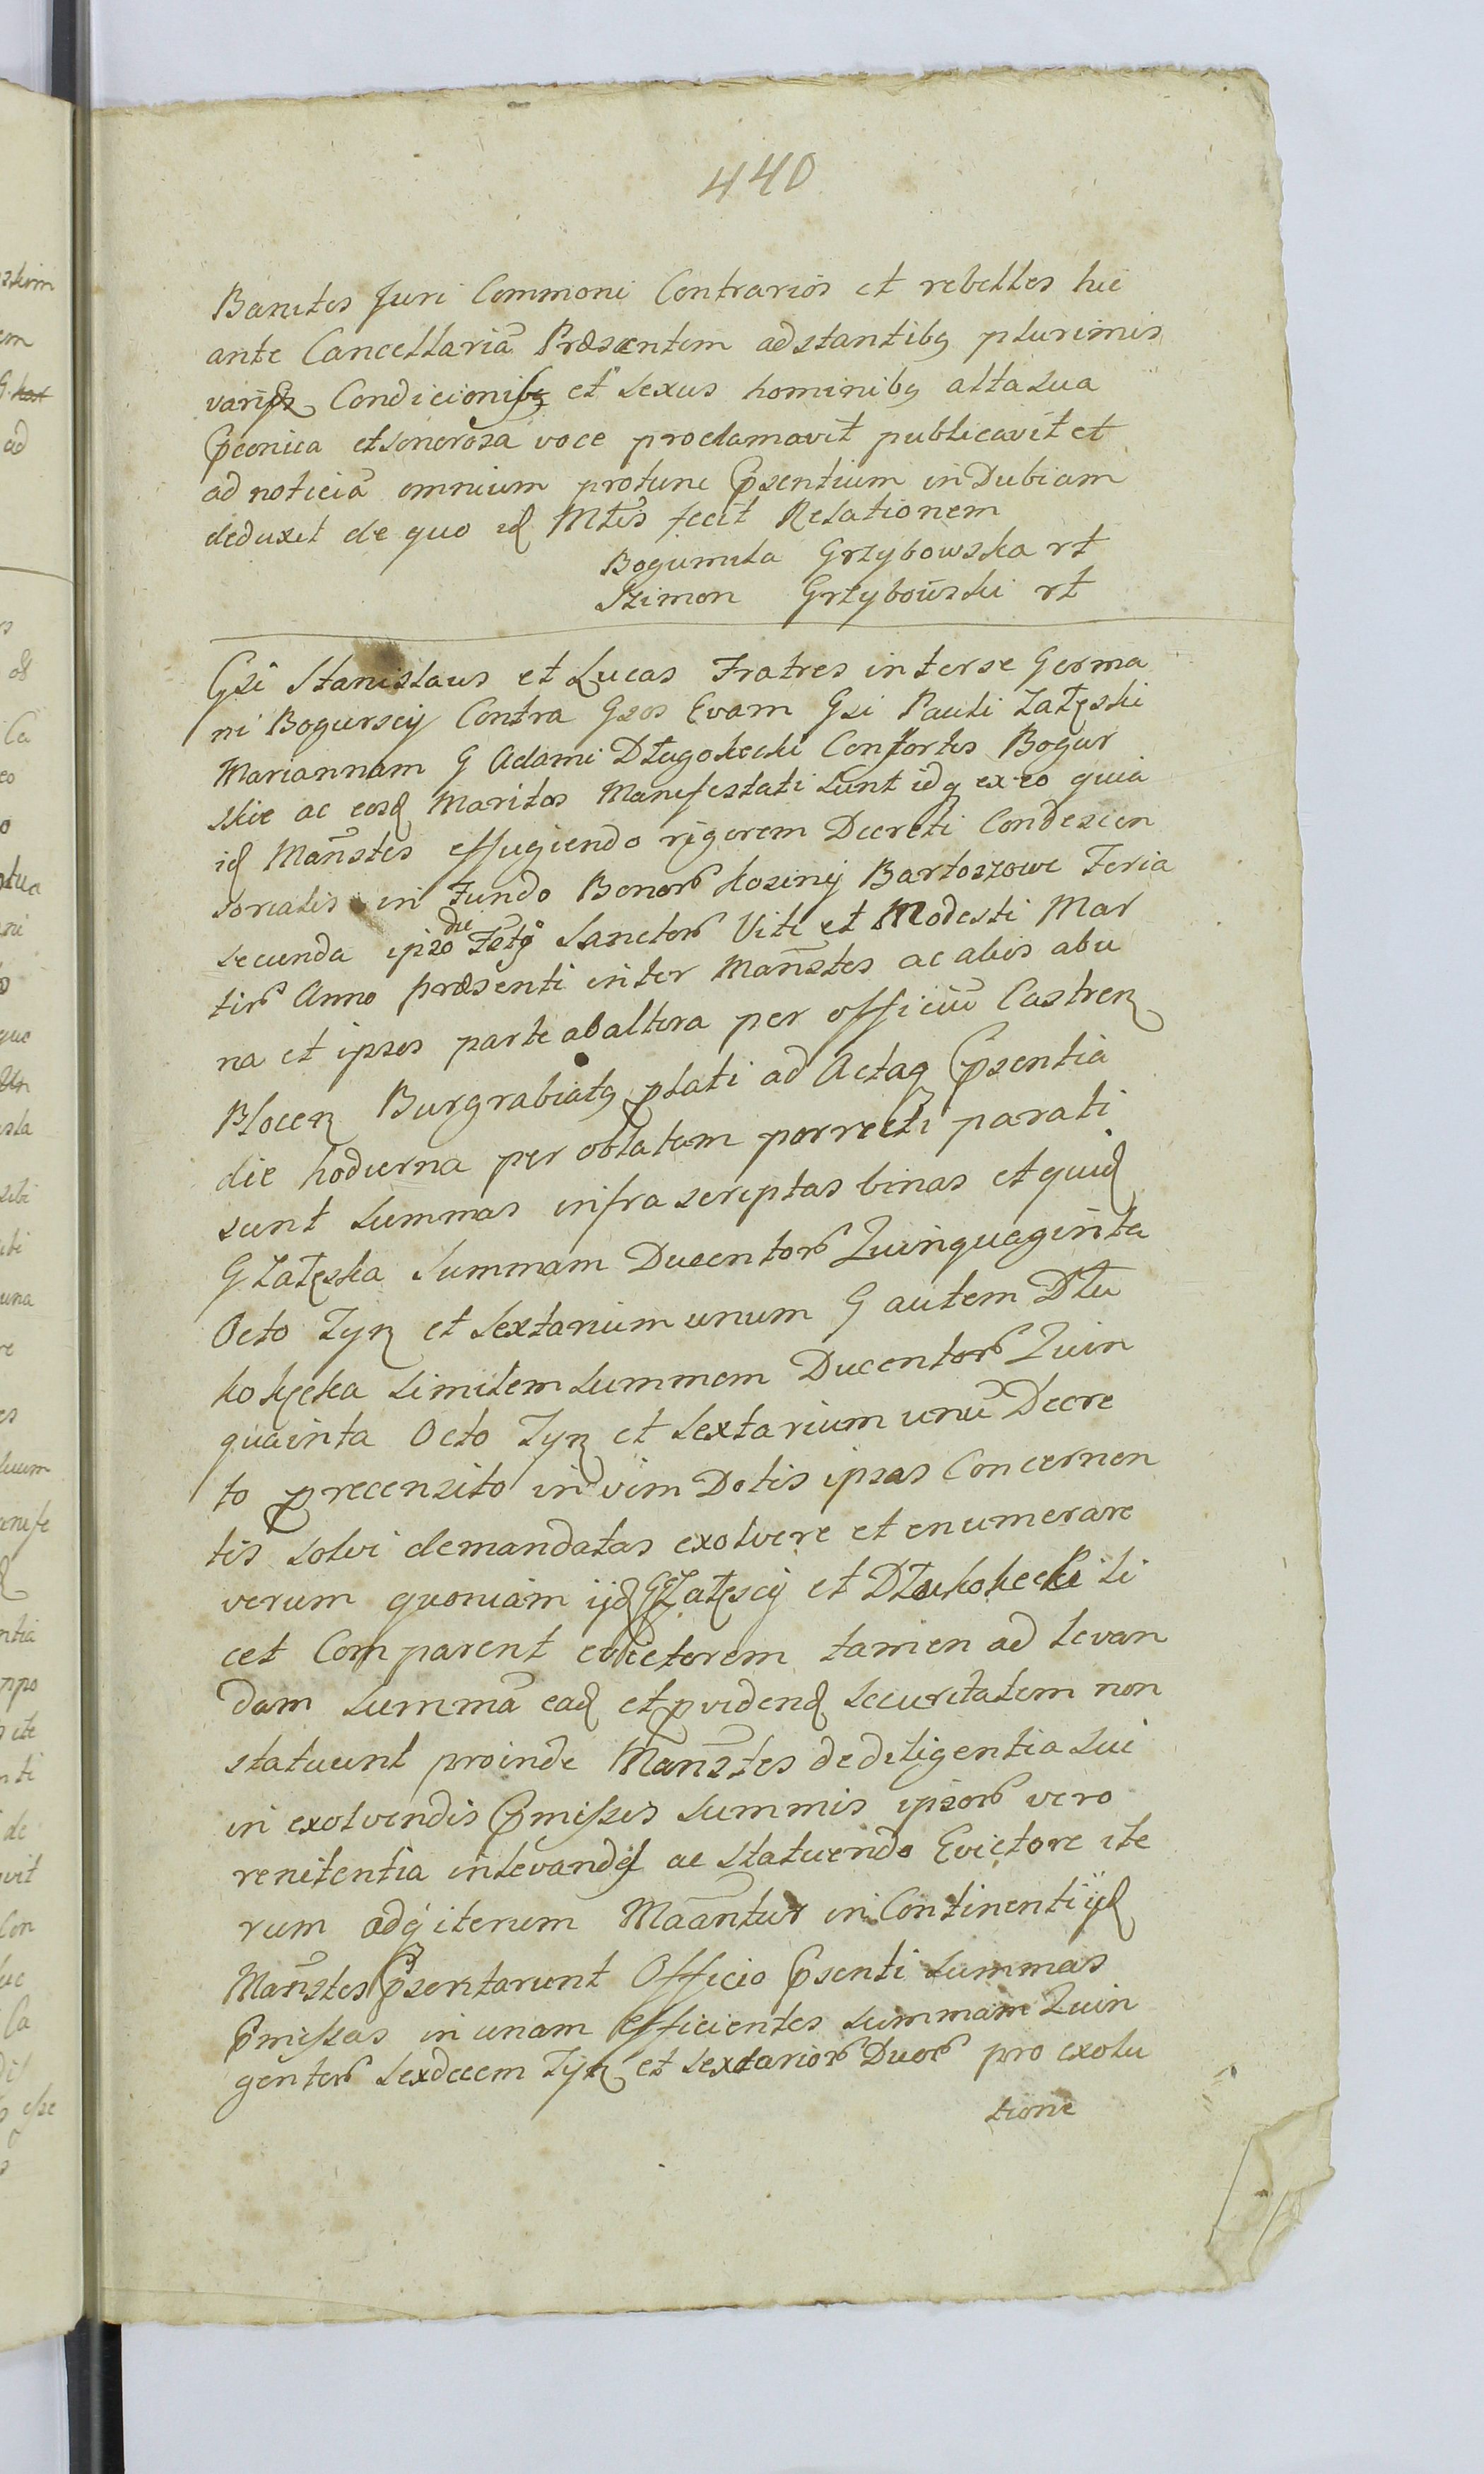 440
Banitos Juri Commoni Contrarios et rebelles hic
ante Cancellariã Præsentem adstantibq plurimis
Condicionibq et Sexus hominibq alta sua
Pconica et sonorosa voce proclamavit publicavit et
ad noticiã omnium protunc Psentium in Dubiam
deduxit de quo id Mtis fecit Relationem
Bogumila Grzybowska rt
Szimon Grzybowski rt
Gsi Stanislaus et Lucas Fratres inter se Germa
ni Bogurscij Contra Gsos Evam Gsi Pauli Załęski
Mariannam G Adami Długokecki Confortes Bogur
skie ac eosd Maritos Manifestati sunt idq ex eo quia
id Mañstes effugiendo rigorem Decreti Condescen
sorialis in Fundo Bonorũ Kosinij Bartoszowe Feria
secunda ipso die Fstq Sanctorũ Viti et Modesti Mar
tirũ Anno præsenti inter Mañstes ac alios ab u
na et ipsos parte ab altera per officiũ Castren
Blocen Burgrabiatq plati ad Actaq Psentia
die hodierna per oblatam porrecti parati
sunt Summas infra scriptas binas et quid
G Załęska Summam Ducentorũ Quinquaginta
Octo Tyn et Sextarium unum G autem Dłu
kokęcka similem summam Ducentorũ Quin
quainta Octo Tyn et Sextarium unũ Decre
to precensito in vim Dotis ipsas Concernen
tis solvi demandatas exolvere et enumerare
verum quoniam ijd GG Załęscij et Dłukokecki li
cet Comparent evictorem tamen ad levan
dam Summã ead et pvidend Securitatem non
statuunt proinde Mañstes de diligentia sui
in exolvendis Pmissis Summis ipsorũ vero
renitentia in levandis ac Statuendo Evictore ite
rum adq iterum Maãntur in Continenti ijd
Mañstes Psentarunt Officio Psenti Summas
Pmissas in unam efficientes Summam Quin
gentorũ Sexdecem Tyn et Sextariorũ Duorũ pro exolu
tione